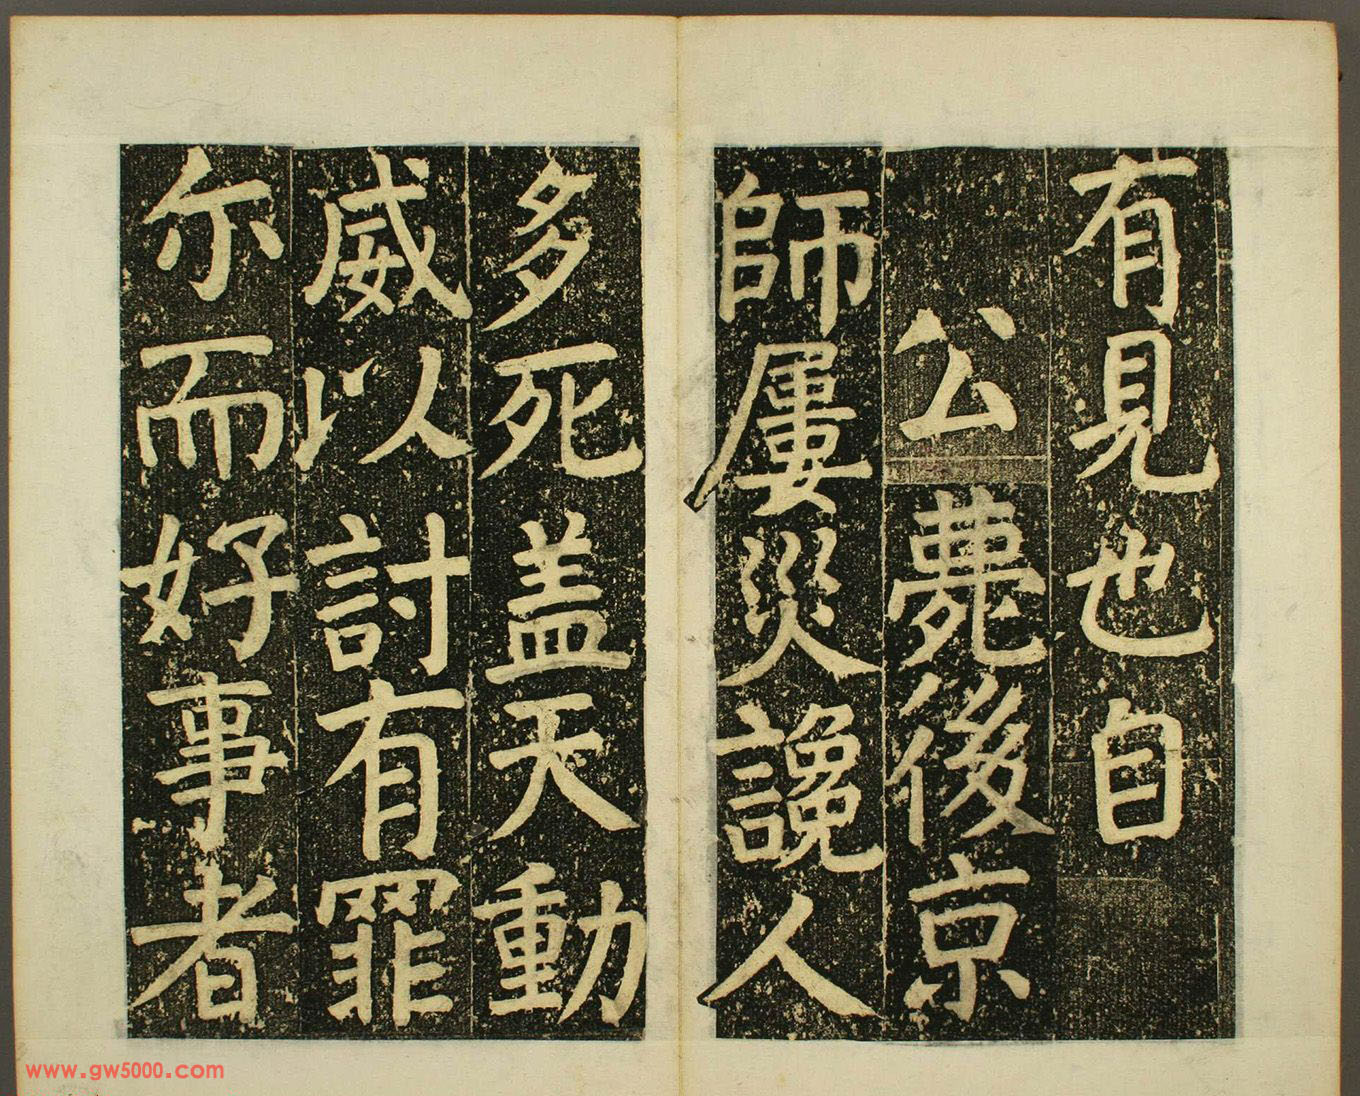 有見也自
公薨後京
師屢災讒人
多死盖天動
威以討有罪
尓而好事者
www.gw5000.com